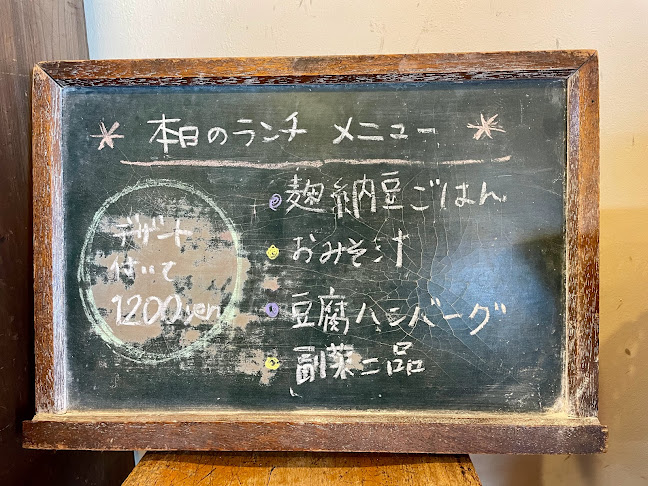 本日のランチ メニュー
麹納豆ごはん
おみそ汁
豆腐ハンバーグ
副菜二品
デザート
付いて
1200yen